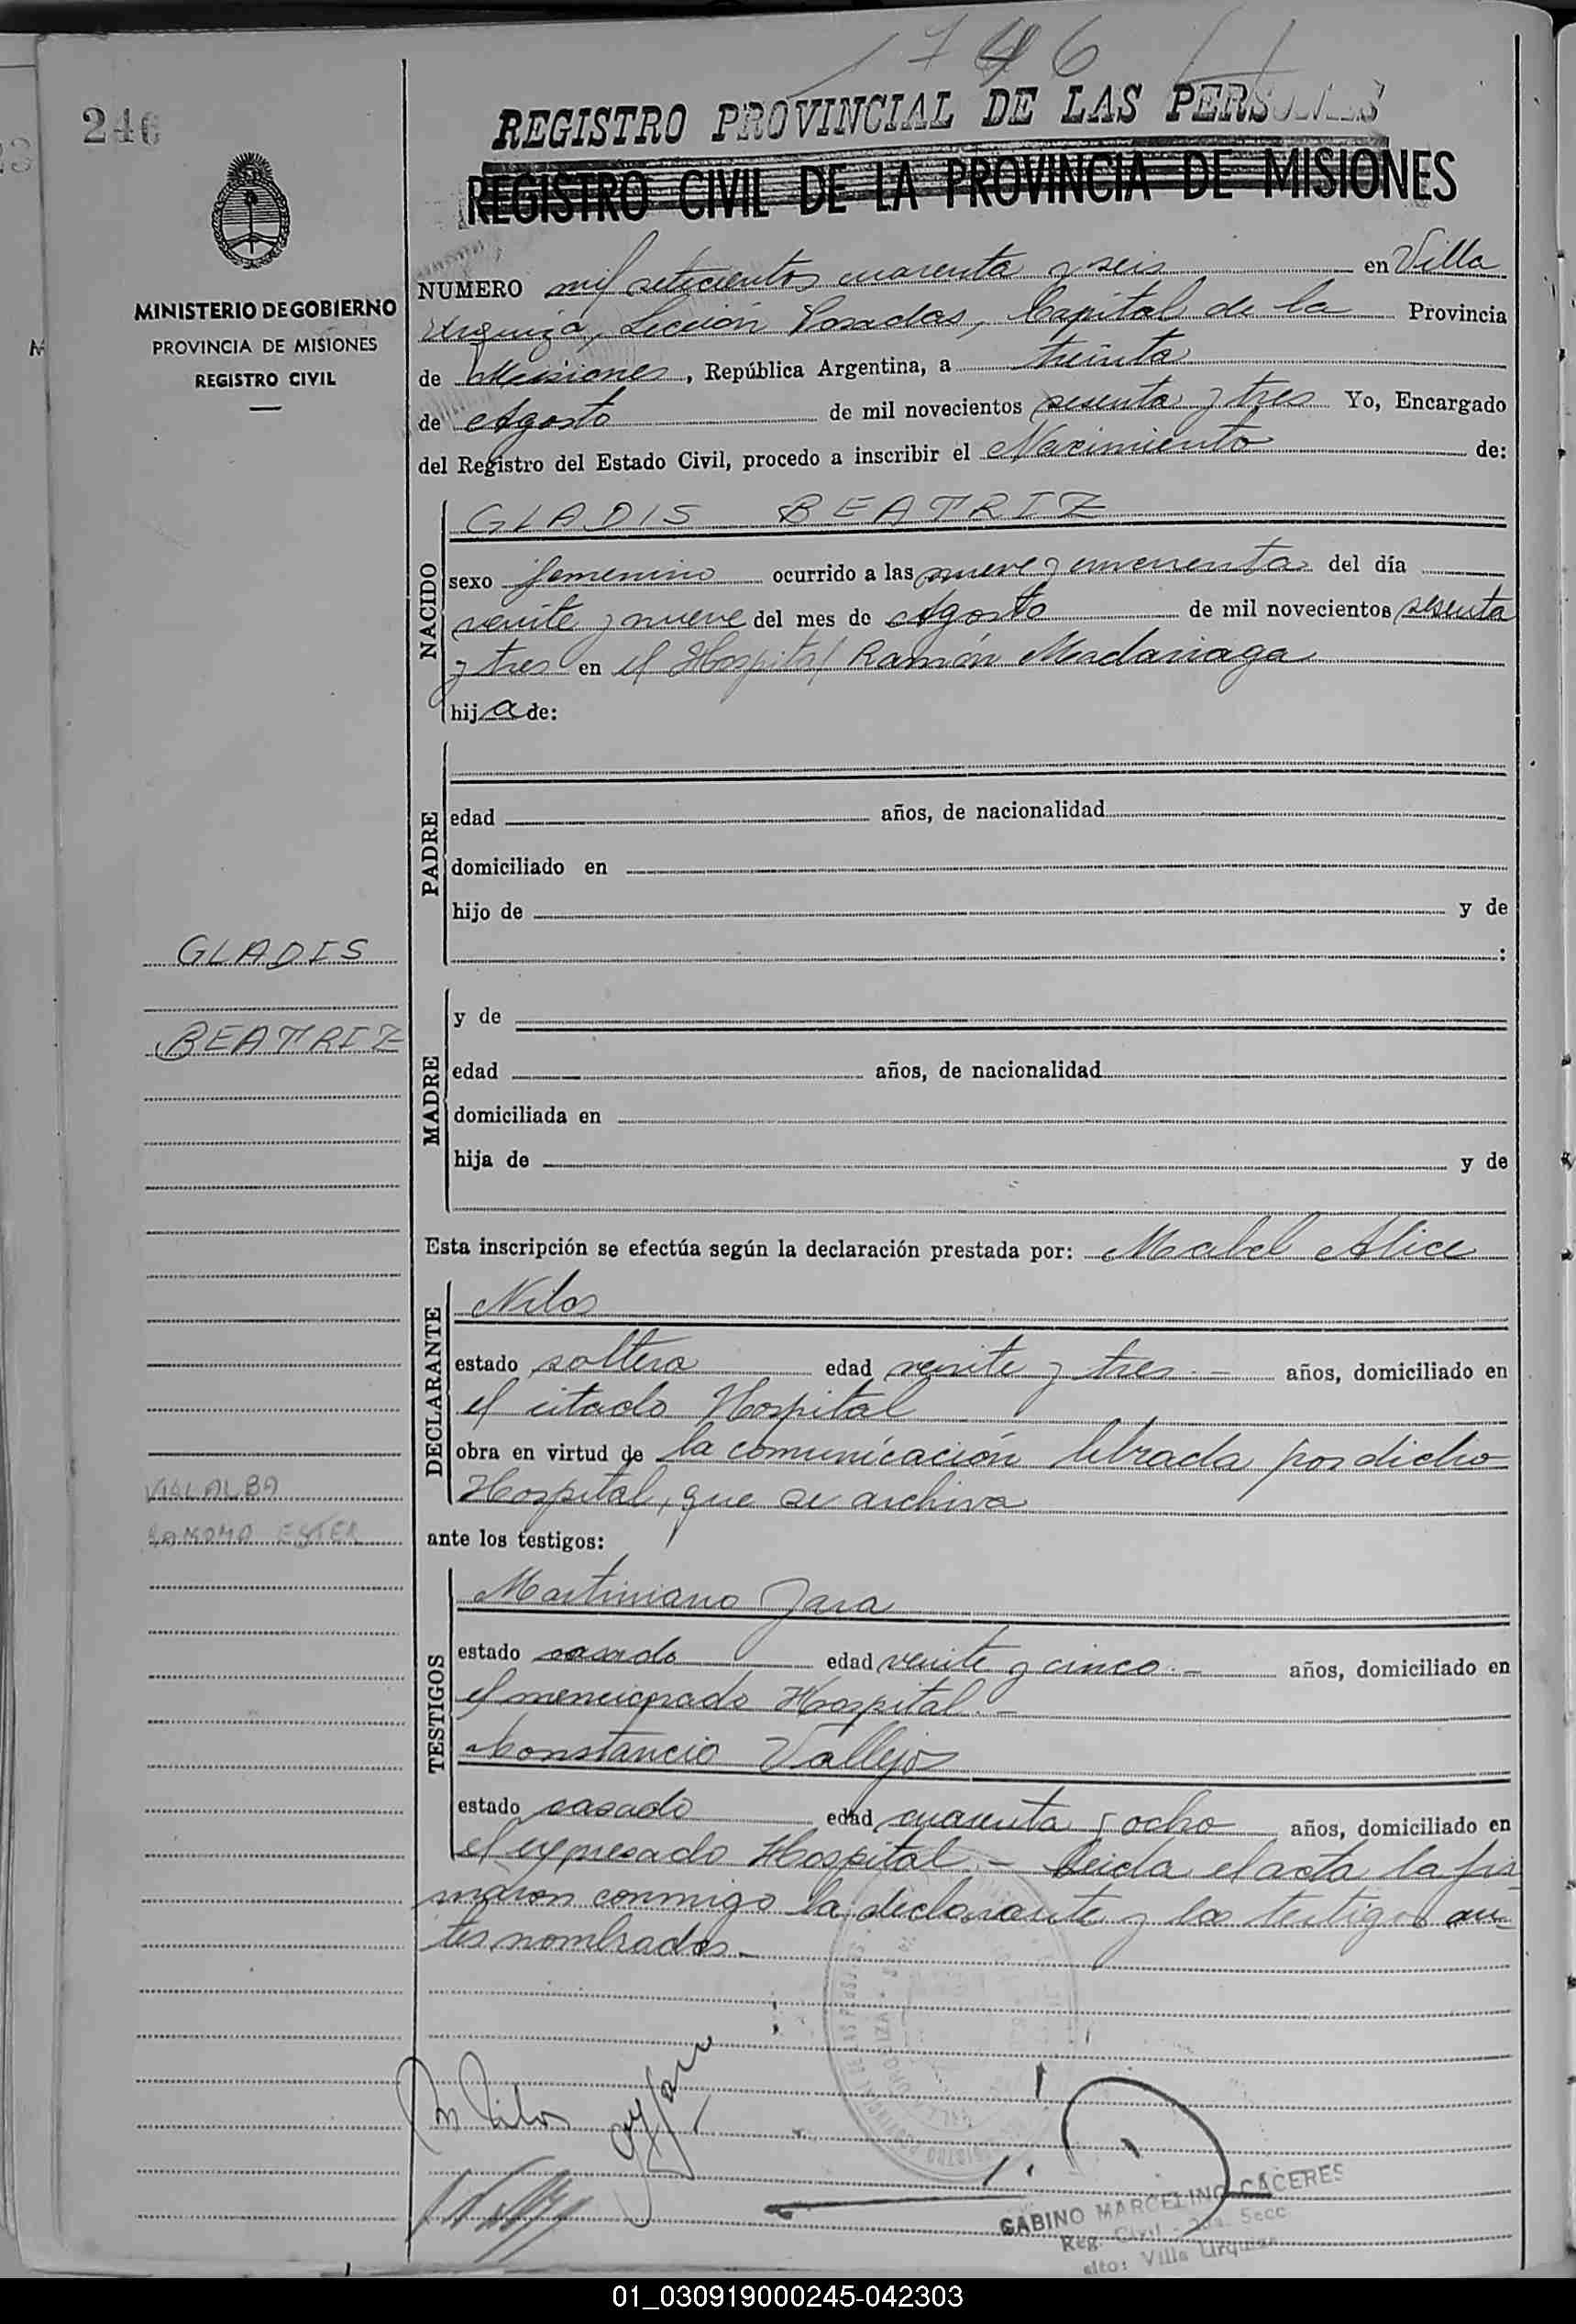 1746
246
REGISTRO PROVINCIAL DE LAS PERSONAS
REGISTRO CIVIL DE LA PROVINCIA DE MISIONES
MINISTERIO DE GOBIERNO
PROVINCIA DE MISIONES
REGISTRO CIVIL
NUMERO mil setecientos cuarenta y seis en Villa
Urquiza, Sección Posadas, Capital de la Provincia
de Misiones, República Argentina, a treinta
de Agosto de mil novecientos sesenta y tres Yo, Encargado
del Registro del Estado Civil, procedo a inscribir el Nacimiento de:
NACIDO
GLADIS BEATRIZ
sexo femenino ocurrido a las nueve y cincuenta del día
veinte y nueve del mes de Agosto de mil novecientos sesenta
y tres en el Hospital Ramón Madariaga
hija de:
PADRE
edad años, de nacionalidad
domiciliado en
hijo de y de
:
GLADIS
BEATRIZ
MADRE
y de
edad años, de nacionalidad
domiciliada en
hija de y de
Esta inscripción se efectúa según la declaración prestada por: Mabel Alice
DECLARANTE
Nilos
estado soltera edad veinte y tres.- años, domiciliado en
el citado Hospital
obra en virtud de la comunicación librada por dicho
Hospital, que se archiva
VILLALBA
RAMONA ESTER
ante los testigos:
TESTIGOS
Martiniano Jara
estado casado edad veinte y cinco.- años, domiciliado en
el mencionado Hospital.-
Constancio Vallejos
estado casado edad cuarenta y ocho años, domiciliado en
el expresado Hospital.- Leida el acta la fir-
maron conmigo la declarante y los testigos an-
tes nombrados.-
GABINO MARCELINO CACERES
Reg. Civil - 2da. Secc
Villa Urquiza
01_030919000245-042303